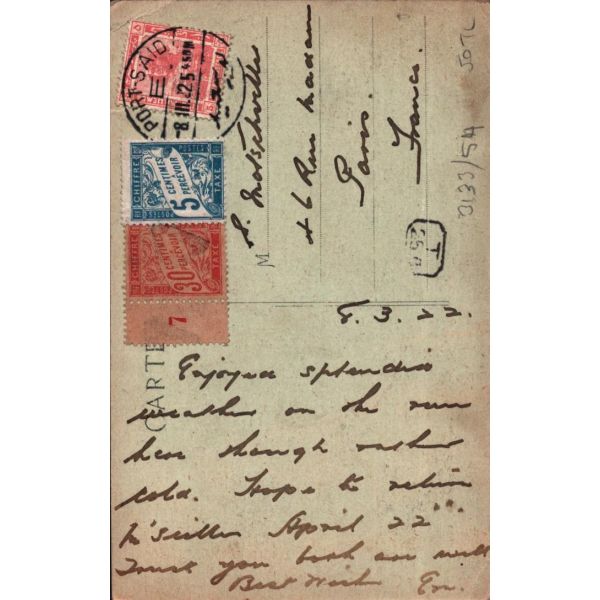 PORT-SAID
E
8 III. 22. 5
CHIFFRE
TAXE
5
CENTIMES
A PERCEVOIR
POSTES
CHIFFRE
TAXE
30
CENTIMES
A PERCEVOIR
7
CARTE
M
46 Rue
Paris.
France.
T
0133/54
50TL
8.3.22.
Enjoyed splendid
weather on the run
here though rather
cold. Hope to return
M'seilles April 22nd.
Trust you both are well
Best Wish